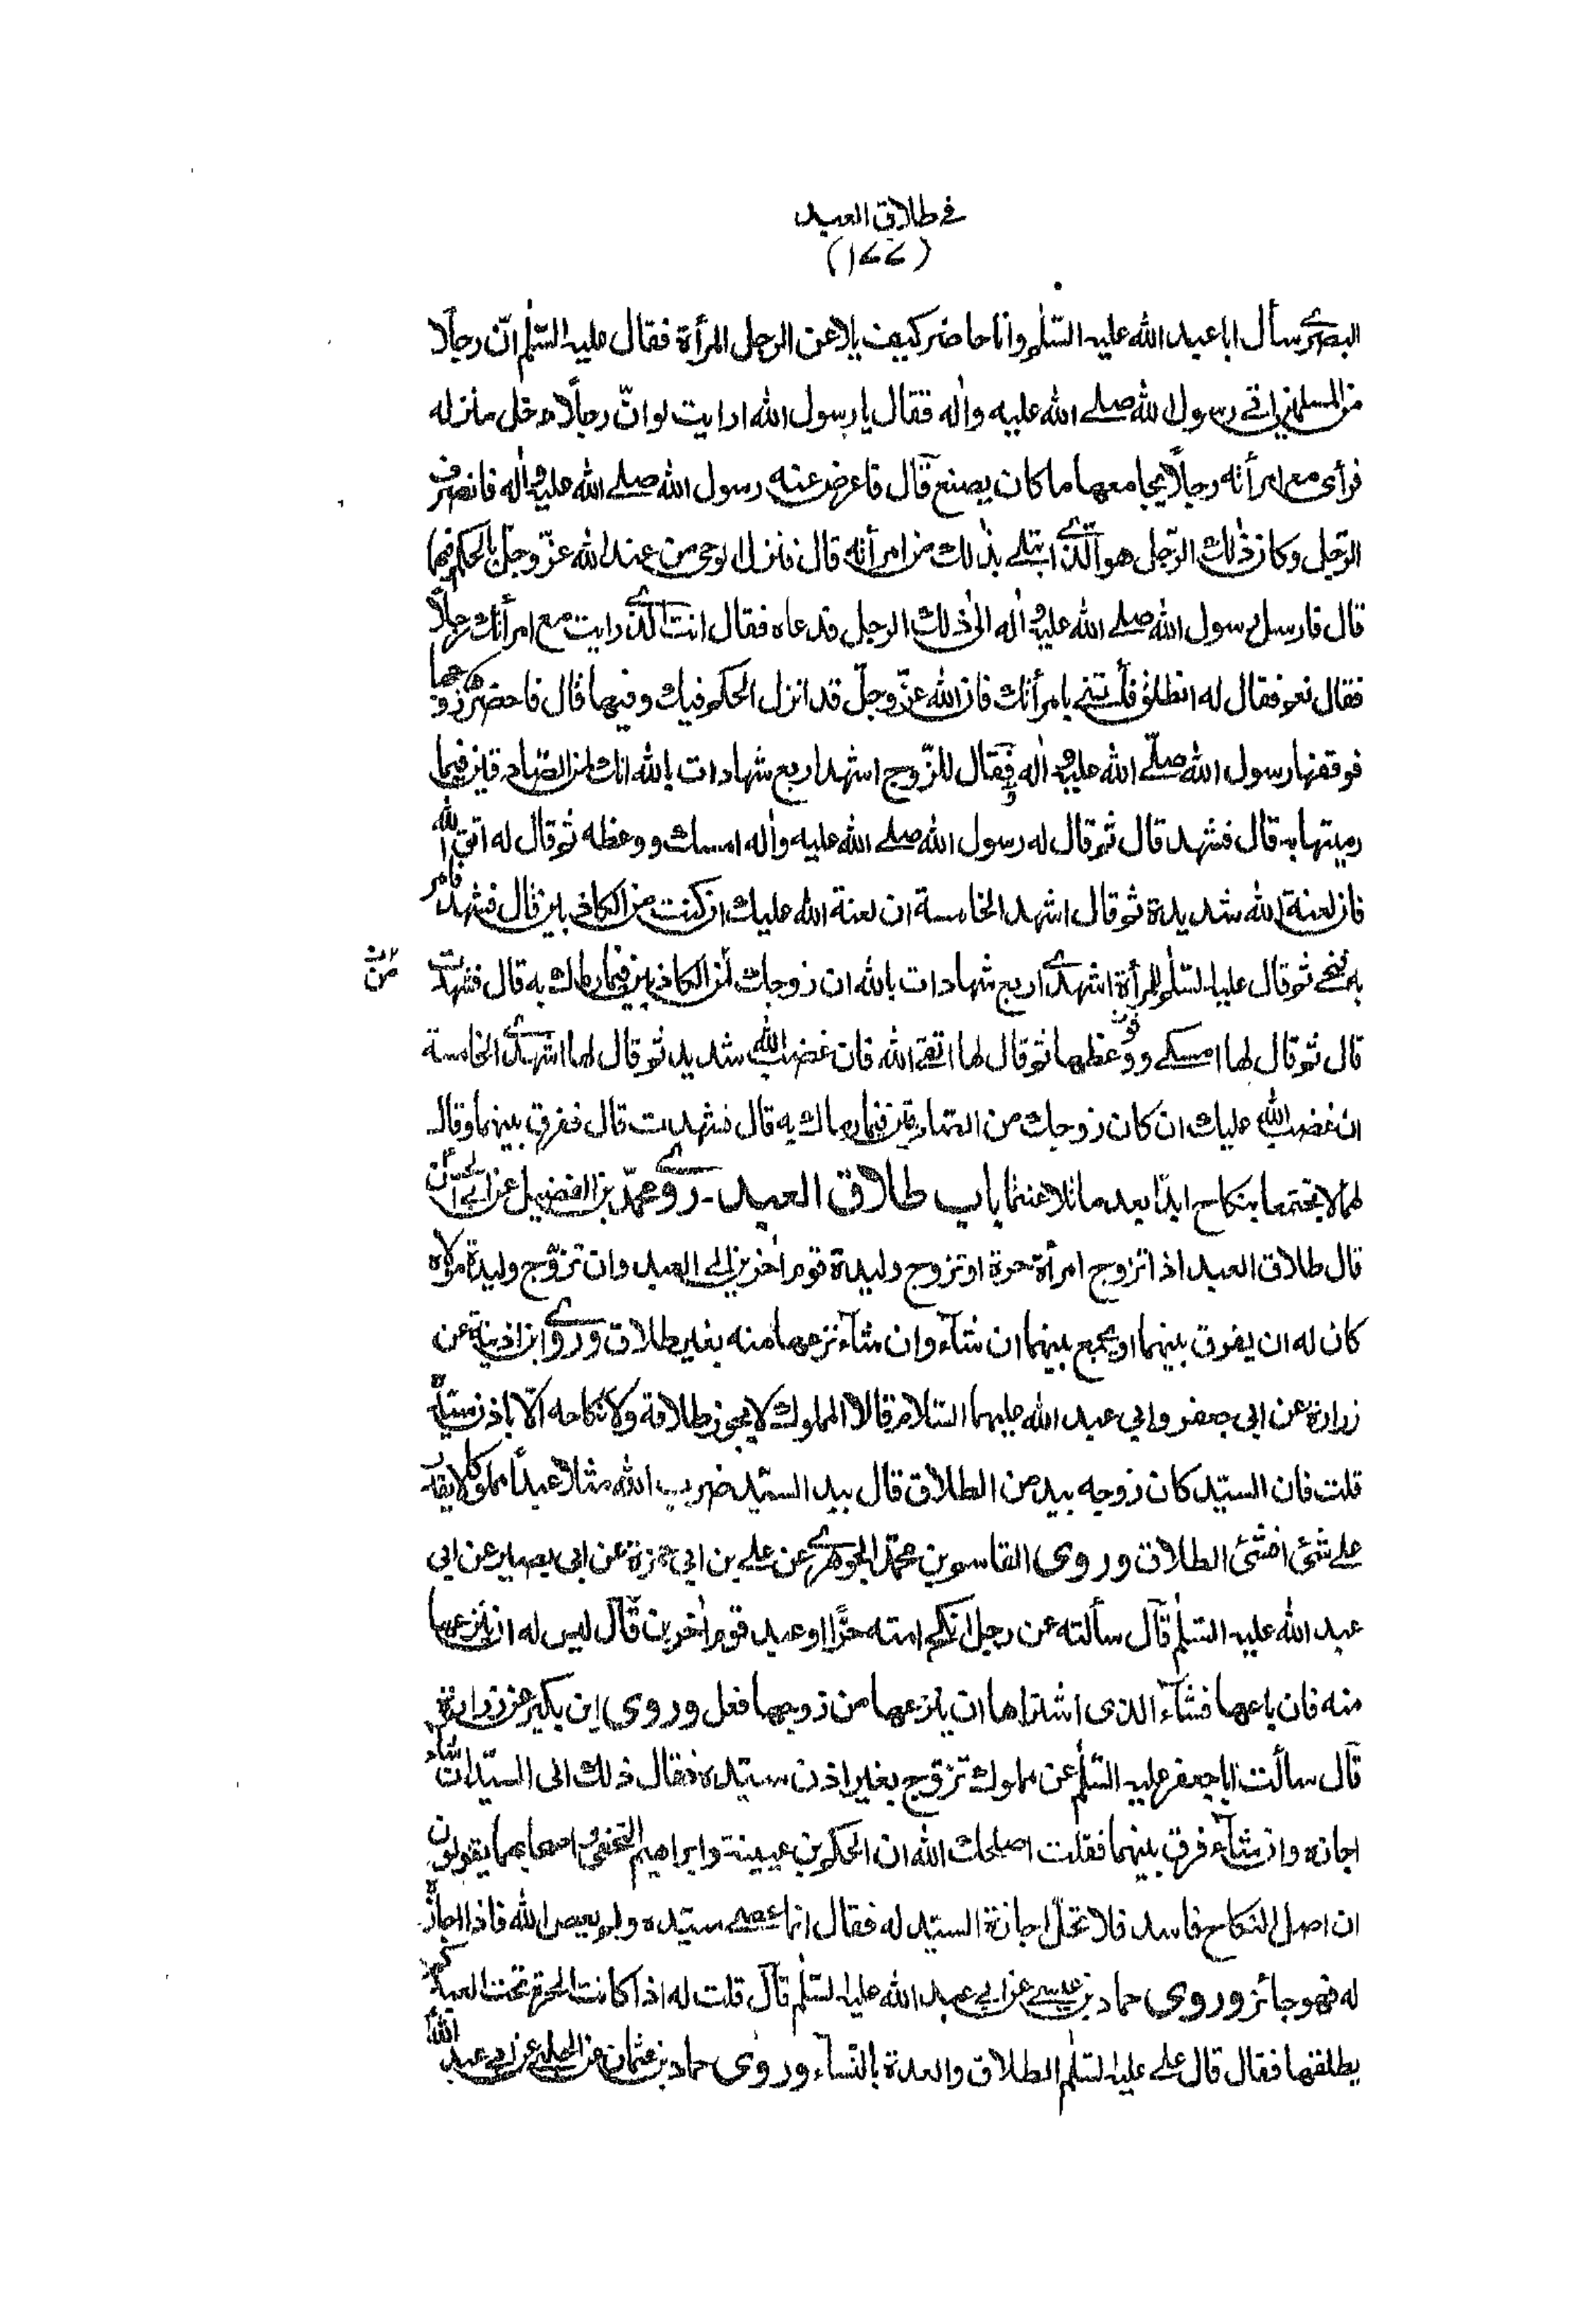 في طلاق العبيد
(١٧٧)
البصري سأل ابا عبد الله عليه السّلم وانا حاضر كيف يلاعن الرجل المرأة فقال عليه السّلم انّ رجلًا
من المسلمين اتى رسول الله صلى الله عليه واٰله فقال يا رسول الله ارايت لو انّ رجلًا دخل منزله
فرأى مع امرأته رجلًا يجامعها ما كان يصنع قال فاعرض عنه رسول الله صلى الله عليه واٰله فانصرف
الرّجل وكان ذٰلك الرّجل هو الّذي ابتلى بذٰلك من امرأته قال فنزل الوحى من عند الله عزّ وجلّ بالحكم فيها
قال فارسل رسول الله صلى الله عليه واٰله الى ذٰلك الرجل فدعاه فقال انت الّذي رايت مع امرأتك رجلًا
فقال نعم فقال له انطلق فأتني بامرأتك فان الله عزّ وجلّ قد انزل الحكم فيك وفيها قال فاحضرها زوجها
فوقفها رسول الله صلّى الله عليه واٰله وقال للزّوج اشهد اربع شهادات بالله انك لمن الصّادقين فيما
رميتها به قال فشهد قال ثم قال له رسول الله صلى الله عليه واٰله امسك ووعظه ثم قال له اتق الله
فان لعنة الله شديدة ثم قال اشهد الخامسة ان لعنة الله عليك ان كنت من الكاذبين قال فشهد فامر
به فنحي ثم قال عليه السّلم للمرأة اشهدي اربع شهادات بالله ان زوجك لمن الكاذبين فيما رماك به قال فشهدت
قال ثم قال لها امسكي ووعظها ثم قال لها اتقى الله فان غضب الله شديد ثم قال لها اشهدي الخامسة
ان غضب الله عليك ان كان زوجك من الصّادقين فيما رماك به قال فشهدت قال ففرق بينهما وقال
لهما لا تجتمعا بنكاح ابدًا بعد ما تلاعنتما باب طلاق العبيد ـ روى محمّد بن الفضيل عن ابي الحسن
قال طلاق العبد اذا تزوج امرأة حرة او تزوج وليدة قوم اٰخرين الى العبد وان تزوّج وليدة مولاه
كان له ان يفرق بينهما او يجمع بينهما ان شآء وان شآء نزعها منه بغير طلاق وروى ابن اذينة عن
زرارة عن ابى جعفر وابي عبد الله عليهما السّلام قالا المملوك لا يجوز طلاقه ولا نكاحه الّا باذن سيّده
قلت فان السيّد كان زوجه بيد من الطلاق قال بيد السيّد ضرب الله مثلا عبدًا مملوكا لا يقدر
على شئ افشئ الطلاق وروى القاسم بن محمّد الجوهري عن على بن ابي حمزة عن ابى بصير عن ابى
عبد الله عليه السّلم قال سألته عن رجل انكح امته حرًّا او عبد قوم اٰخرين قال ليس له ان ينزعها
منه فان باعها فشآء الذى اشتراها ان ينزعها من زوجها فعل وروى ابن بكير عن زرارة
قال سألت ابا جعفر عليه السّلم عن مملوك تزوّج بغير اذن سيّده فقال ذلك الى السيّد ان شاء
اجازه وان شآء فرق بينهما فقلت اصلحك الله ان الحكم بن عيينة وابراهيم النخعي واصحابهما يقولون
ان اصل النكاح فاسد فلا تحلّ اجازة السيّد له فقال انما عصى سيّده ولم يعص الله فاذا اجازه
له فهو جائز وروى حماد بن عيسى عن ابي عبد الله عليه السّلم قال قلت له اذا كانت الحرة تحت العبد كم
يطلقها فقال قال على عليه السّلم الطلاق والعدة بالنّسآء وروى حماد بن عثمان عن الحلبي عن ابي عبد الله